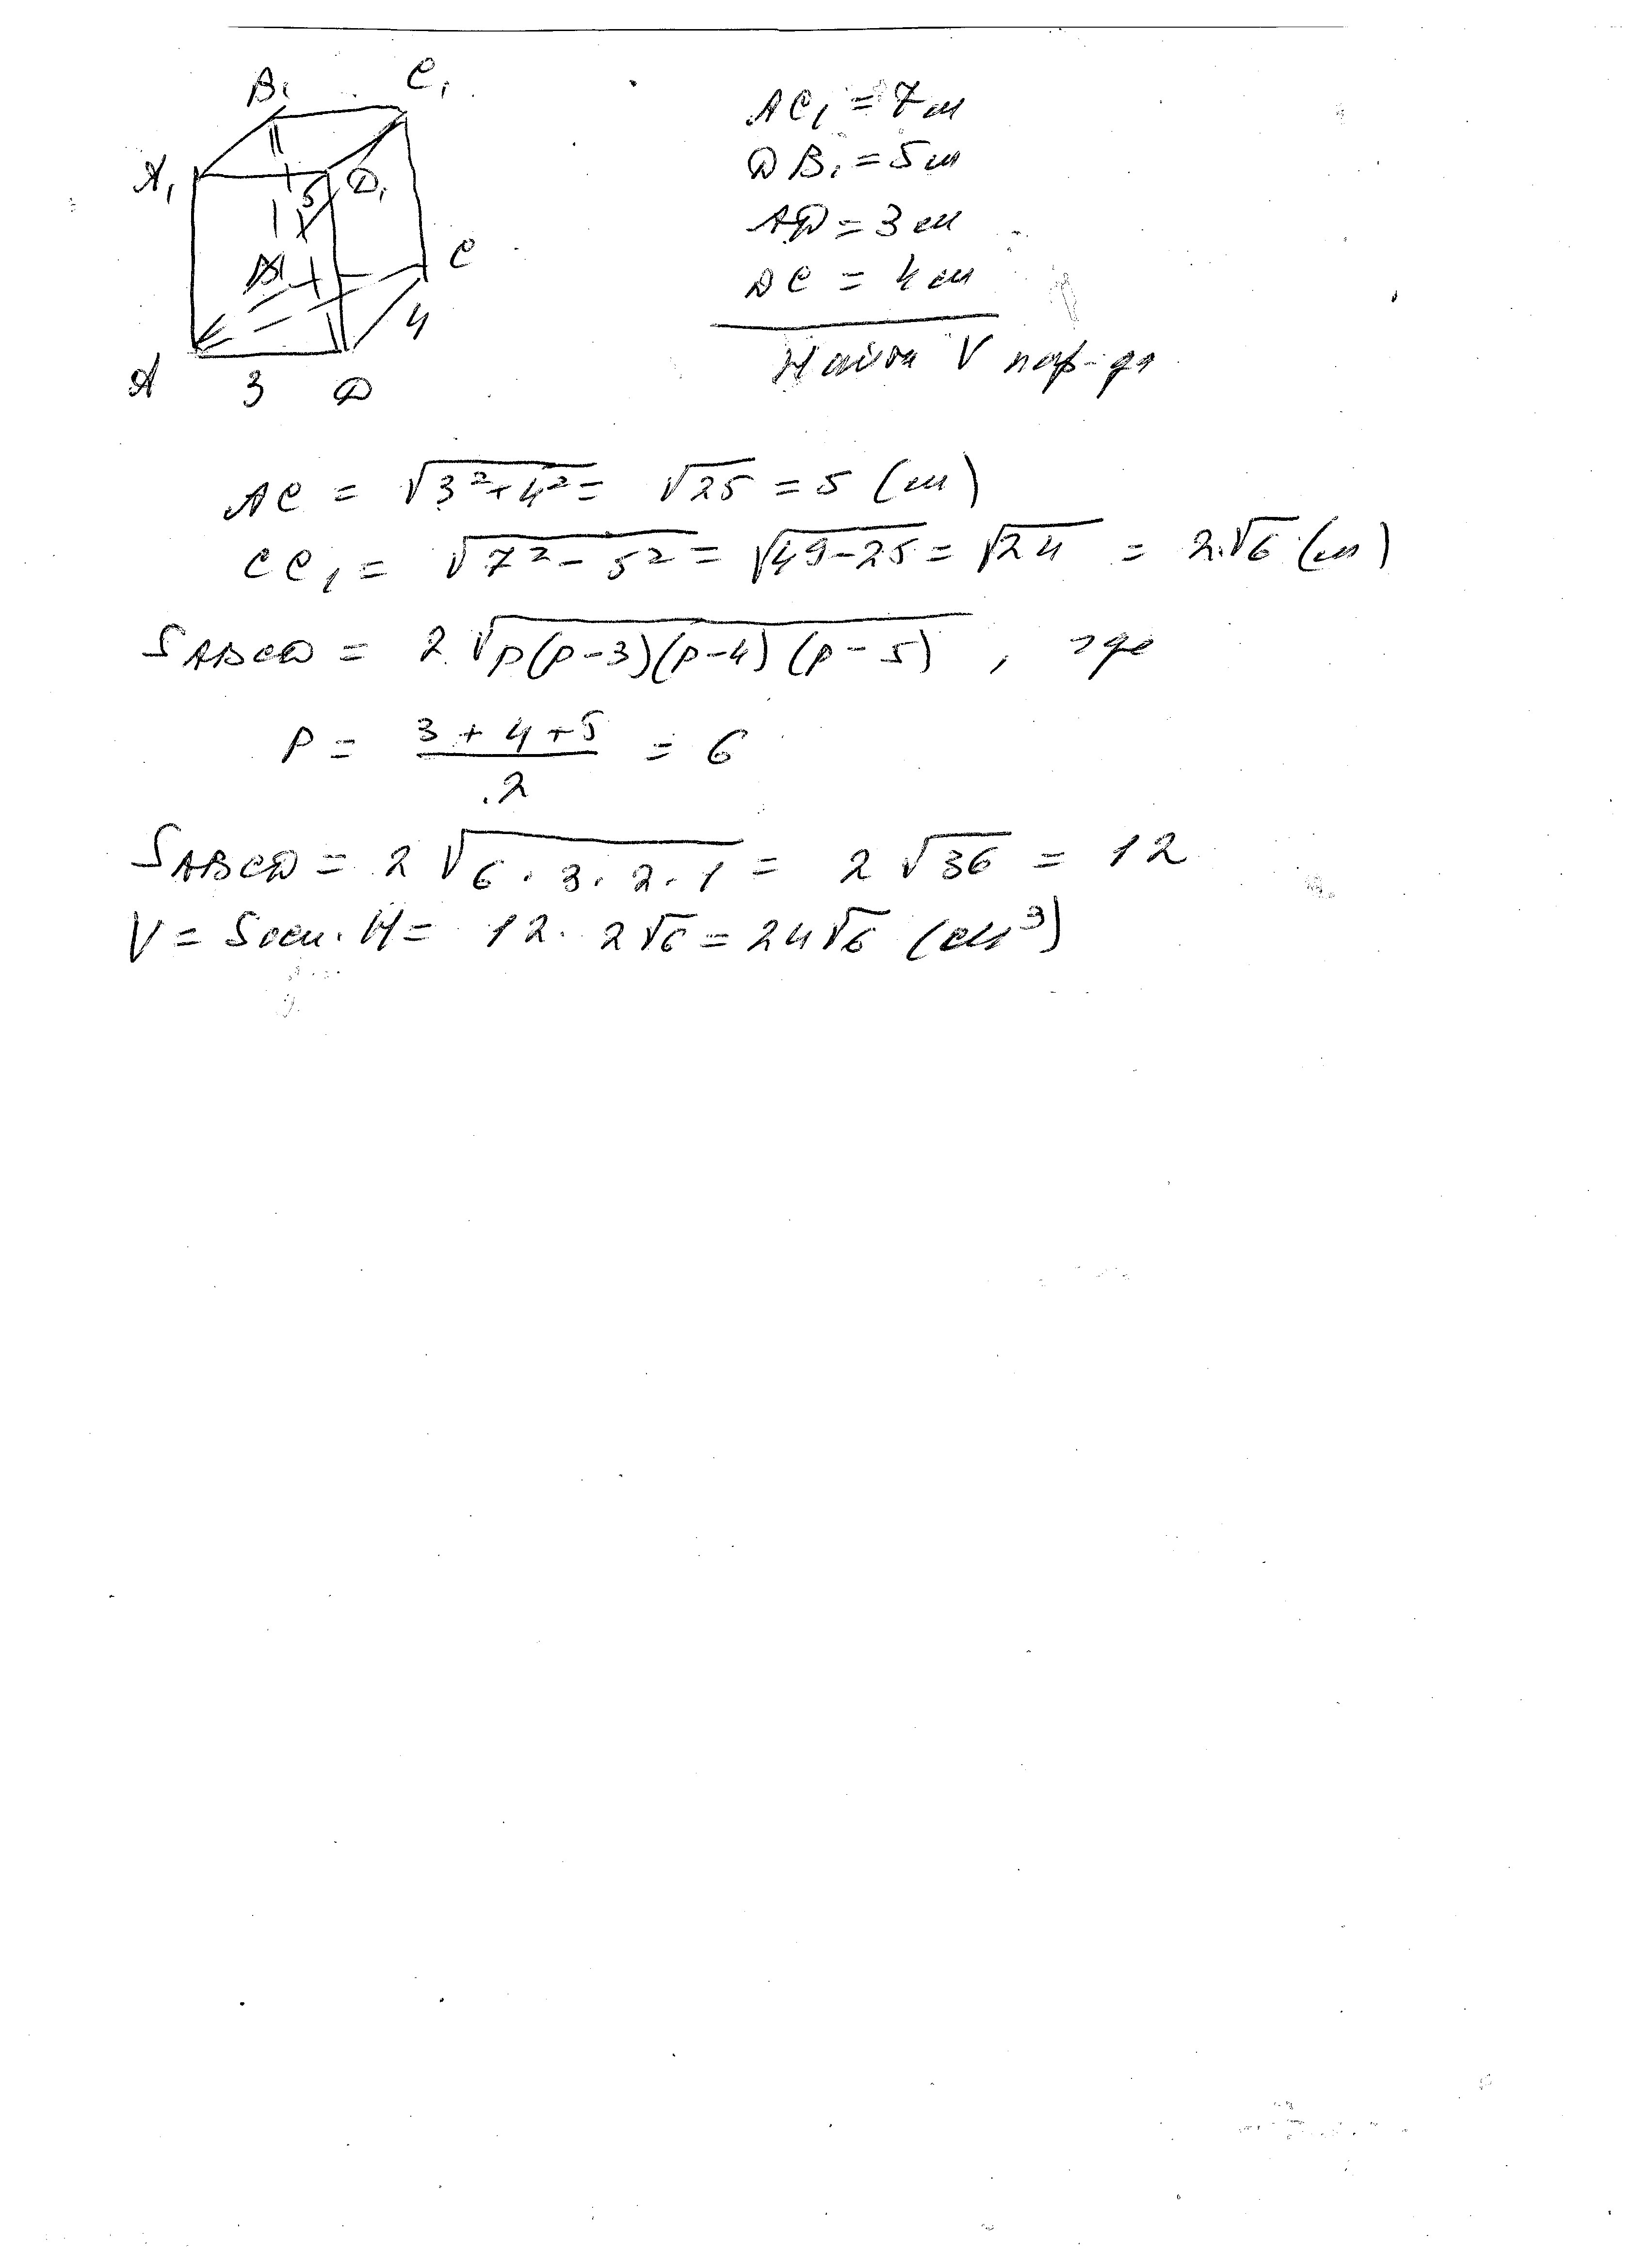 B₁ C₁
A₁ 5 D₁
B C
4
A 3 D
AC₁ = 7 см
DB₁ = 5 см
AD = 3 см
DC = 4 см
Найти V пар-да
AC = √3²+4² = √25 = 5 (см)
CC₁ = √7² - 5² = √49-25 = √24 = 2√6 (см)
S ABCD = 2 √p(p-3)(p-4)(p-5) , где
P = 3+4+5 / 2 = 6
S ABCD = 2 √6 · 3 · 2 · 1 = 2 √36 = 12
V = Sосн. H = 12 · 2√6 = 24√6 (см³)